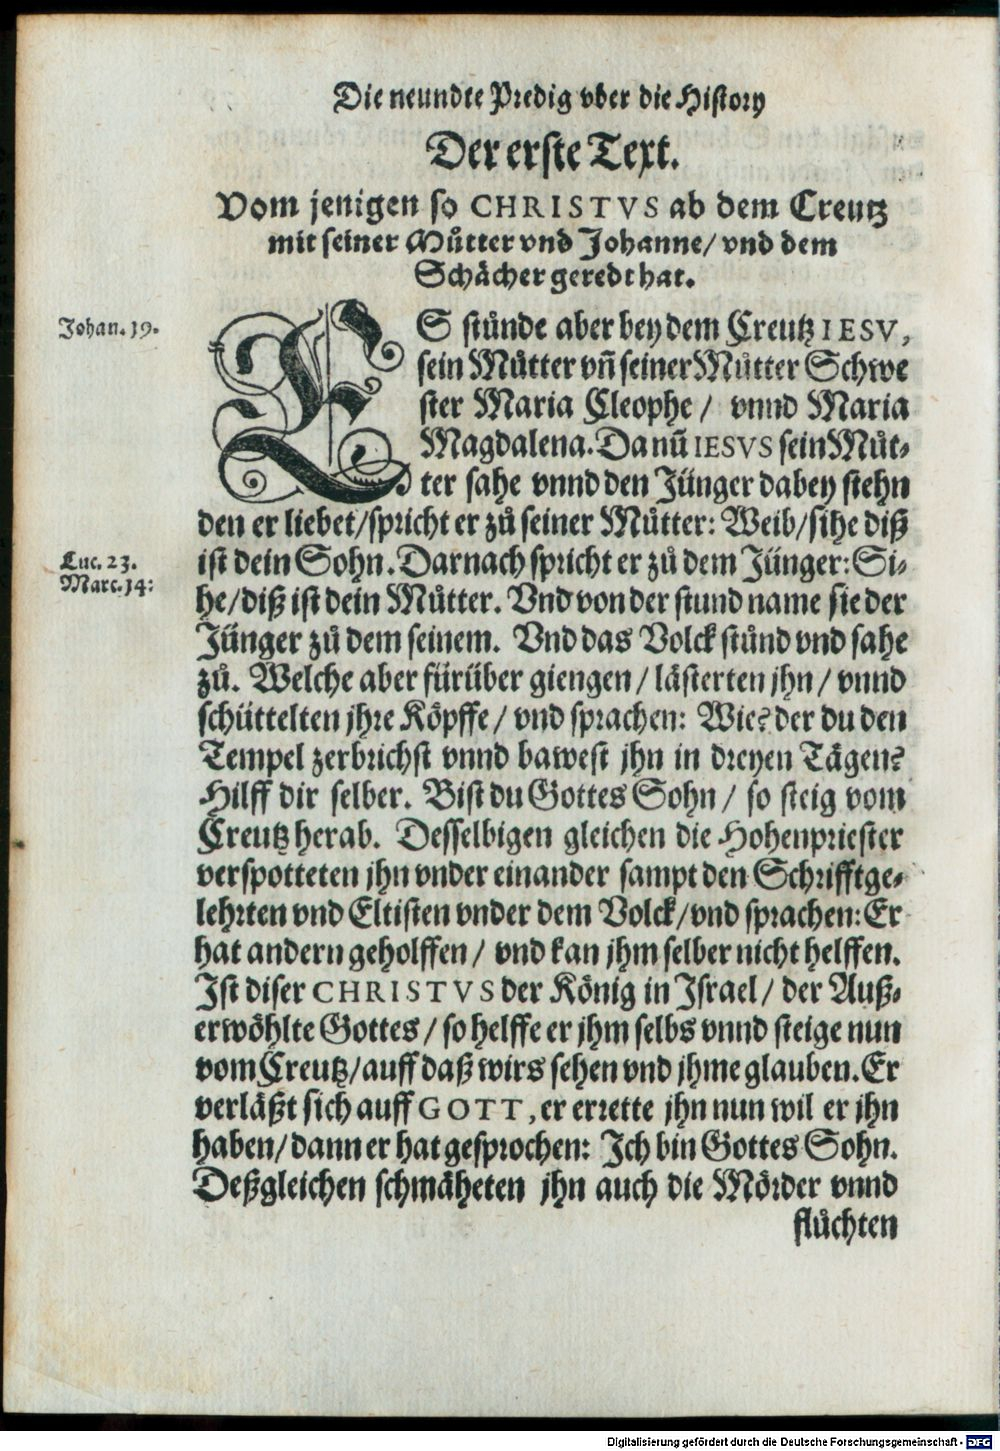 Die neundte Predig vber die History
Der erste Text.
Vom jenigen so CHRISTVS ab dem Creutz
mit seiner Můtter vnd Johanne/ vnd dem
Schächer geredt hat.
Johan. 19.
ES stůnde aber bey dem Creutz IESV,
sein Můtter vñ seiner Můtter Schwe
ster Maria Cleophe / vnnd Maria
Magdalena. Da nũ IESVS sein Můt-
ter sahe vnnd den Jünger dabey stehn
den er liebet/spricht er zů seiner Můtter: Weib/sihe diß
Luc. 23.
Marc. 14:
ist dein Sohn. Darnach spricht er zů dem Jünger: Si-
he/diß ist dein Můtter. Vnd von der stund name sie der
Jünger zů dem seinem. Vnd das Volck stůnd vnd sahe
zů. Welche aber fürüber giengen / lästerten jhn / vnnd
schüttelten jhre Köpffe / vnd sprachen: Wie? der du den
Tempel zerbrichst vnnd bawest jhn in dreyen Tägen?
Hilff dir selber. Bist du Gottes Sohn / so steig vom
Creutz herab. Desselbigen gleichen die Hohenpriester
verspotteten jhn vnder einander sampt den Schrifftge-
lehrten vnd Eltisten vnder dem Volck/vnd sprachen: Er
hat andern geholffen / vnd kan jhm selber nicht helffen.
Ist diser CHRISTVS der König in Israel / der Auß-
erwöhlte Gottes / so helffe er jhm selbs vnnd steige nun
vom Creutz/auff daß wirs sehen vnd jhme glauben. Er
verläßt sich auff GOTT, er errette jhn nun wil er jhn
haben/dann er hat gesprochen: Ich bin Gottes Sohn.
Deßgleichen schmäheten jhn auch die Mörder vnnd
flůchten
Digitalisierung gefördert durch die Deutsche Forschungsgemeinschaft - DFG